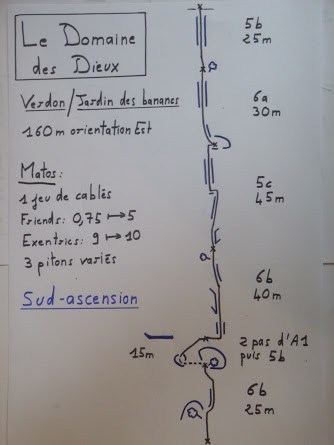 Le Domaine
des Dieux
Verdon/Jardin des bananes
160m orientation Est
Matos:
1 jeu de cablés
Friends: 0,75 ↦ 5
Exentrics: 9 ↦ 10
3 pitons variés
Sud-ascension
5b
25m
6a
30m
5c
45m
6b
40m
2 pas d'A1
puis 5b
15m
6b
25m